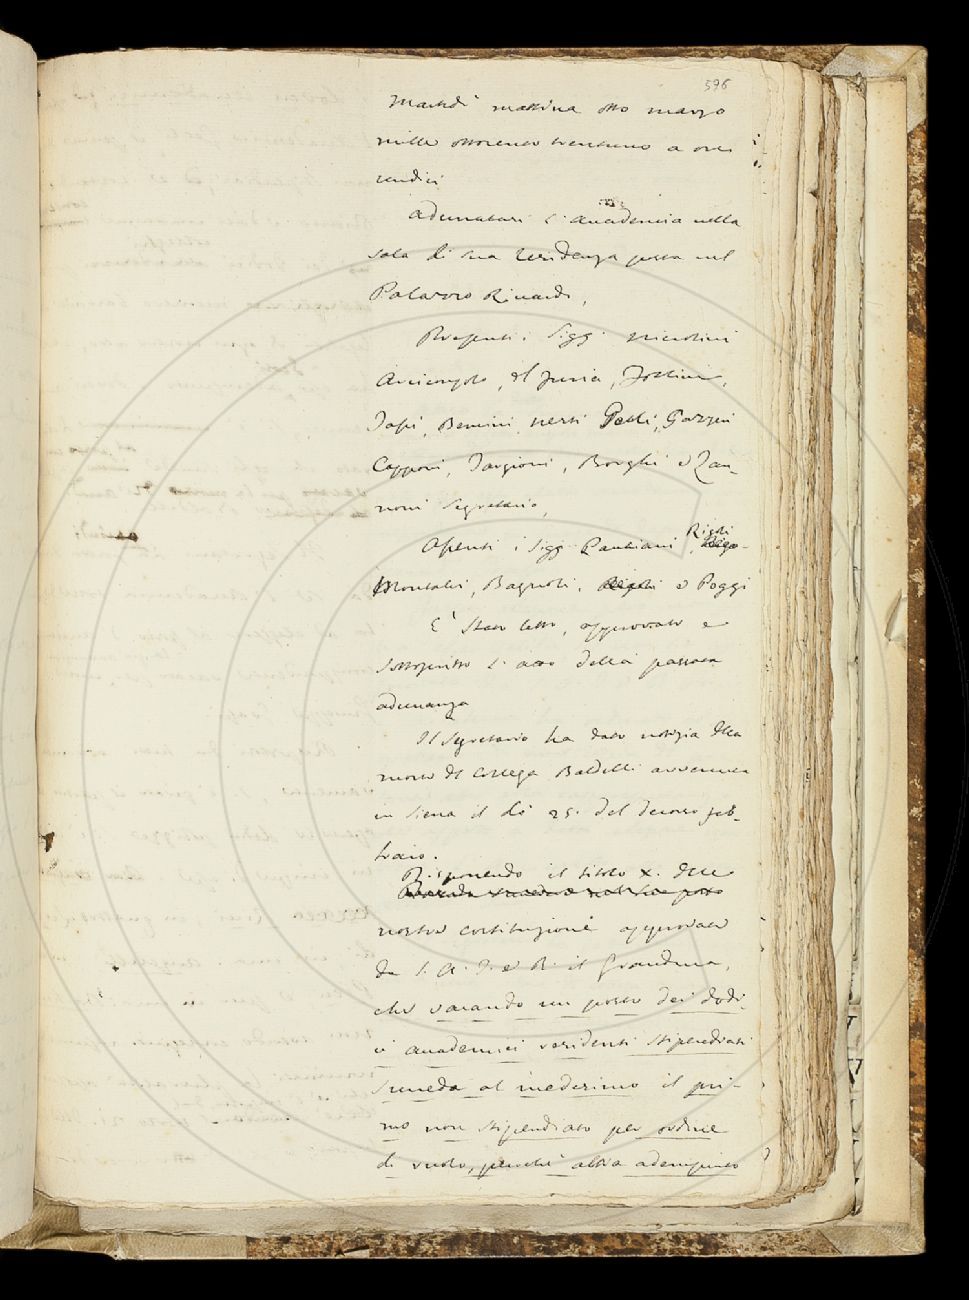 596
Martedì mattina otto marzo
mille ottocento trentuno a ore
undici
Adunatasi l'Accademia nella
sala di sua residenza posta nel
Palazzo Riccardi,
Presenti i Sigg. Niccolini
Arciconsolo, del Furia, Follini,
Bencini, Nesti, Gazzeri
Capponi, Targioni, Borghi e Zan-
noni Segretario,
Assenti i Sigg.
Rigoli
Montalvi, Bagnoli, e Poggi
E' stato letto, approvato e
sottoscritto l'atto della passata
adunanza
Il Segretario ha dato notizia della
morte del Collega Baldelli avvenuta
in Siena il dì 25. del decorso feb-
braio.
Disponendo il titolo X. delle
nostre costituzioni approvate
da S. A. I. e R. il Granduca,
che vacando un posto dei dodi-
ci accademici residenti stipendiati
suceda al medesimo il pri-
mo non stipendiato per ordine
di ruolo, purchè abbia adempiuto